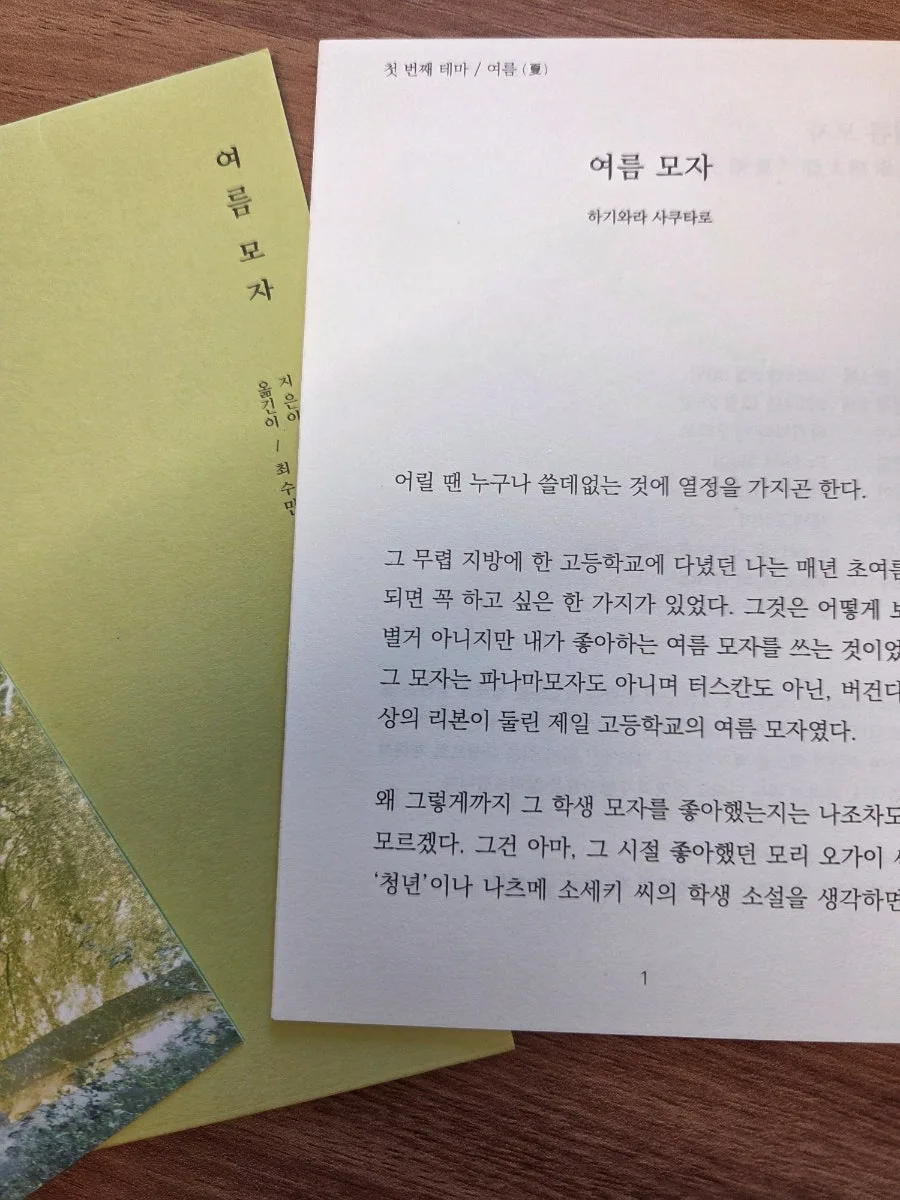 여름 모자
지은이
옮긴이 / 최수민
첫 번째 테마 / 여름 (夏)
여름 모자
하기와라 사쿠타로
어릴 땐 누구나 쓸데없는 것에 열정을 가지곤 한다.
그 무렵 지방에 한 고등학교에 다녔던 나는 매년 초여름
되면 꼭 하고 싶은 한 가지가 있었다. 그것은 어떻게
별거 아니지만 내가 좋아하는 여름 모자를 쓰는 것이었
그 모자는 파나마모자도 아니며 터스칸도 아닌, 버건디
상의 리본이 둘린 제일 고등학교의 여름 모자였다.
왜 그렇게까지 그 학생 모자를 좋아했는지는 나조차도
모르겠다. 그건 아마, 그 시절 좋아했던 모리 오가이
‘청년’이나 나츠메 소세키 씨의 학생 소설을 생각하면
1